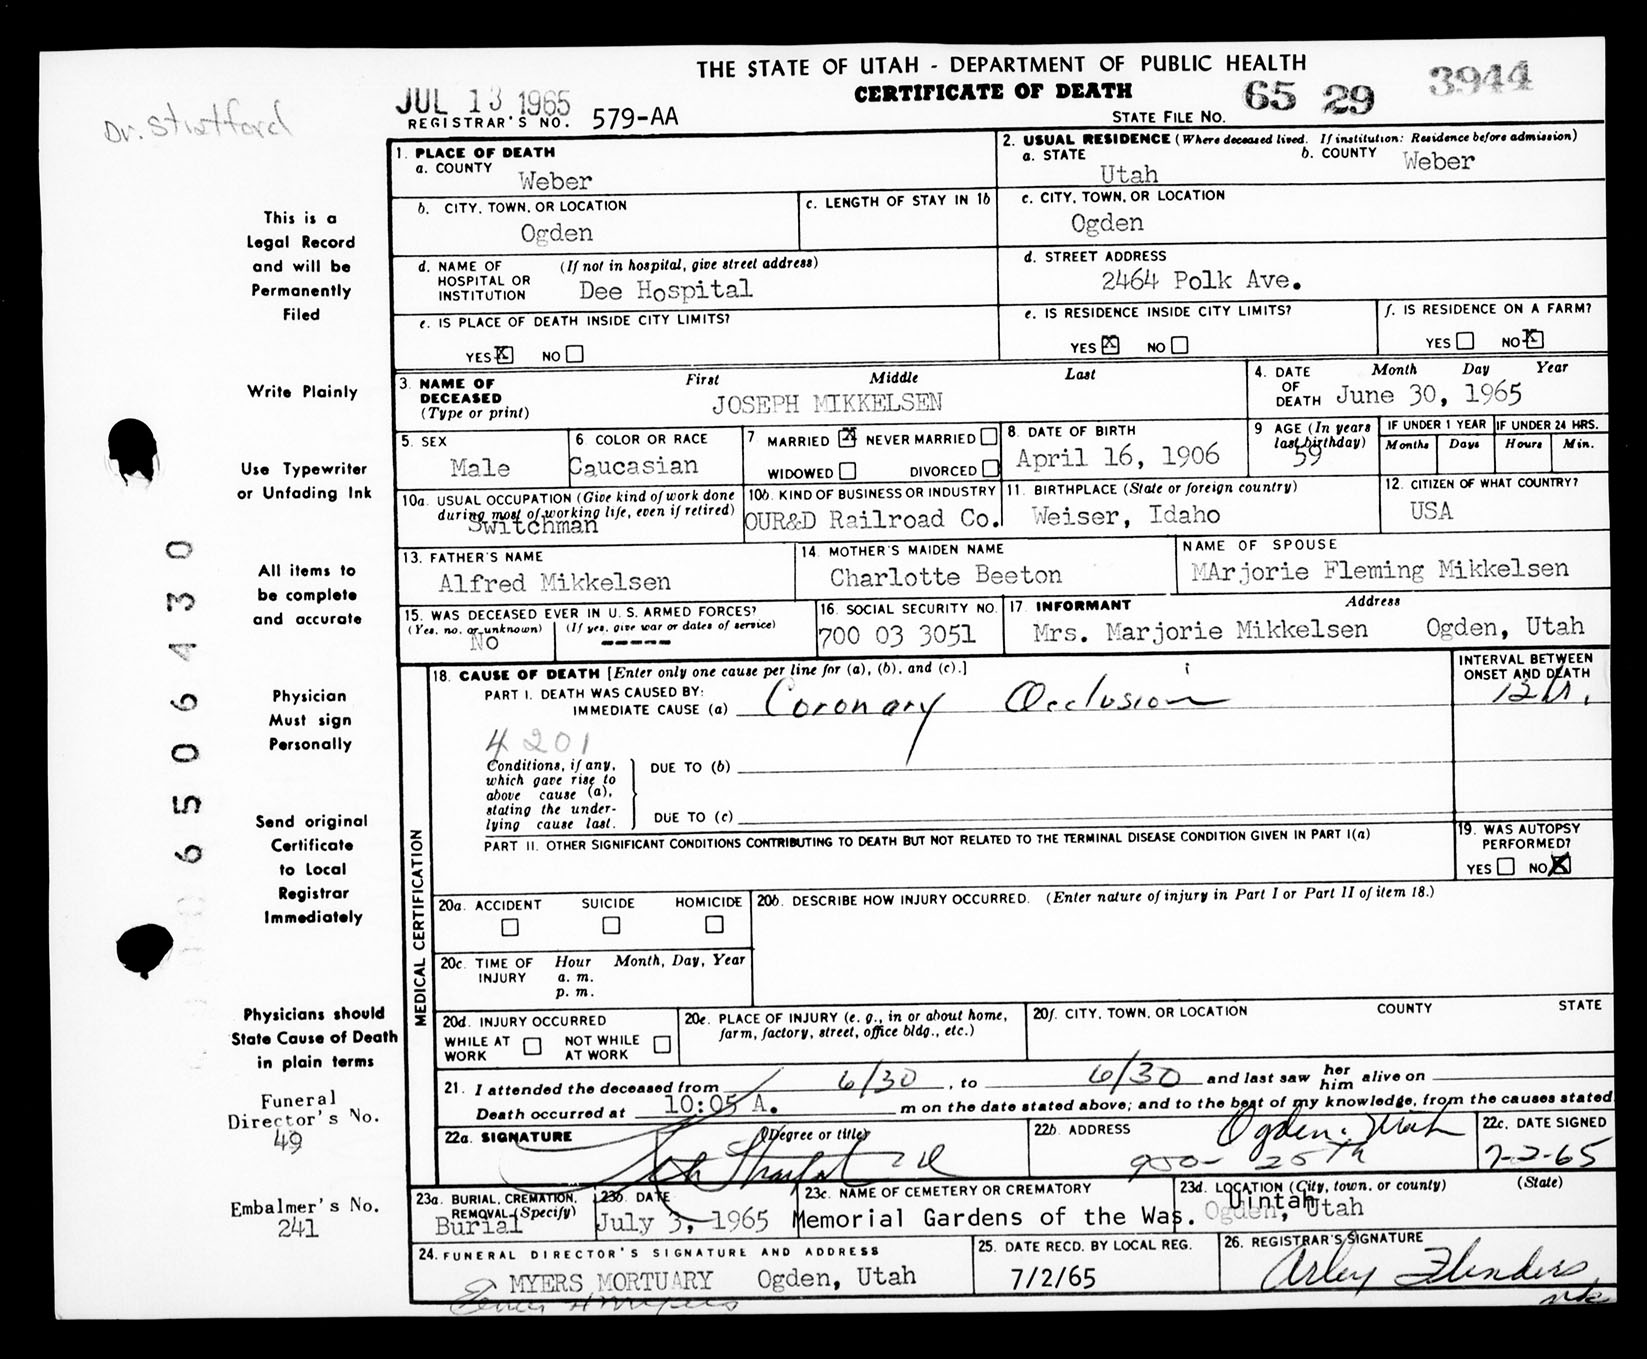 THE STATE OF UTAH - DEPARTMENT OF PUBLIC HEALTH
CERTIFICATE OF DEATH
JUL 13 1965
REGISTRAR'S NO. 579-AA
STATE FILE NO. 65 29 3944
Dr. Stratford
This is a
Legal Record
and will be
Permanently
Filed
Write Plainly
Use Typewriter
or Unfading Ink
All items to
be complete
and accurate
Physician
Must sign
Personally
Send original
Certificate
to Local
Registrar
Immediately
Physicians should
State Cause of Death
in plain terms
Funeral
Director's No.
49
Embalmer's No.
241
6506430
1. PLACE OF DEATH
a. COUNTY
Weber
2. USUAL RESIDENCE (Where deceased lived. If institution: Residence before admission)
a. STATE
Utah
b. COUNTY
Weber
b. CITY, TOWN, OR LOCATION
Ogden
c. LENGTH OF STAY IN 1b
c. CITY, TOWN, OR LOCATION
Ogden
d. NAME OF HOSPITAL OR INSTITUTION
(If not in hospital, give street address)
Dee Hospital
d. STREET ADDRESS
2464 Polk Ave.
e. IS PLACE OF DEATH INSIDE CITY LIMITS?
YES X NO
e. IS RESIDENCE INSIDE CITY LIMITS?
YES X NO
f. IS RESIDENCE ON A FARM?
YES NO X
3. NAME OF DECEASED
(Type or print)
First Middle Last
JOSEPH MIKKELSEN
4. DATE OF DEATH
Month Day Year
June 30, 1965
5. SEX
Male
6 COLOR OR RACE
Caucasian
7 MARRIED X NEVER MARRIED
WIDOWED DIVORCED
8. DATE OF BIRTH
April 16, 1906
9 AGE (In years last birthday)
59
IF UNDER 1 YEAR
Months Days
IF UNDER 24 HRS.
Hours Min.
10a. USUAL OCCUPATION (Give kind of work done during most of working life, even if retired)
Switchman
10b. KIND OF BUSINESS OR INDUSTRY
OUR&D Railroad Co.
11. BIRTHPLACE (State or foreign country)
Weiser, Idaho
12. CITIZEN OF WHAT COUNTRY?
USA
13. FATHER'S NAME
Alfred Mikkelsen
14. MOTHER'S MAIDEN NAME
Charlotte Beeton
NAME OF SPOUSE
MArjorie Fleming Mikkelsen
15. WAS DECEASED EVER IN U. S. ARMED FORCES?
(Yes, no, or unknown) (If yes, give war or dates of service)
No -----
16. SOCIAL SECURITY NO.
700 03 3051
17. INFORMANT Address
Mrs. Marjorie Mikkelsen Ogden, Utah
MEDICAL CERTIFICATION
18. CAUSE OF DEATH [Enter only one cause per line for (a), (b), and (c).]
PART I. DEATH WAS CAUSED BY:
IMMEDIATE CAUSE (a) Coronary Occlusion
INTERVAL BETWEEN ONSET AND DEATH
12 h.
4201
Conditions, if any,
which gave rise to
above cause (a),
stating the under-
lying cause last.
DUE TO (b)
DUE TO (c)
PART II. OTHER SIGNIFICANT CONDITIONS CONTRIBUTING TO DEATH BUT NOT RELATED TO THE TERMINAL DISEASE CONDITION GIVEN IN PART I(a)
19. WAS AUTOPSY PERFORMED?
YES NO X
20a. ACCIDENT SUICIDE HOMICIDE
20b. DESCRIBE HOW INJURY OCCURRED. (Enter nature of injury in Part I or Part II of item 18.)
20c. TIME OF INJURY
Hour Month, Day, Year
a. m.
p. m.
20d. INJURY OCCURRED
WHILE AT WORK NOT WHILE AT WORK
20e. PLACE OF INJURY (e. g., in or about home, farm, factory, street, office bldg., etc.)
20f. CITY, TOWN, OR LOCATION COUNTY STATE
21. I attended the deceased from 6/30, to 6/30 and last saw her him alive on
Death occurred at 10:05 A. m on the date stated above; and to the best of my knowledge, from the causes stated
22a. SIGNATURE (Degree or title)
22b. ADDRESS
Ogden, Utah
950- 25th
22c. DATE SIGNED
7-2-65
23a. BURIAL, CREMATION, REMOVAL (Specify)
Burial
23b. DATE
July 3, 1965
23c. NAME OF CEMETERY OR CREMATORY
Memorial Gardens of the Was.
23d. LOCATION (City, town, or county) (State)
Uintah
Ogden, Utah
24. FUNERAL DIRECTOR'S SIGNATURE AND ADDRESS
MYERS MORTUARY Ogden, Utah
25. DATE RECD. BY LOCAL REG.
7/2/65
26. REGISTRAR'S SIGNATURE
Arley Flinders